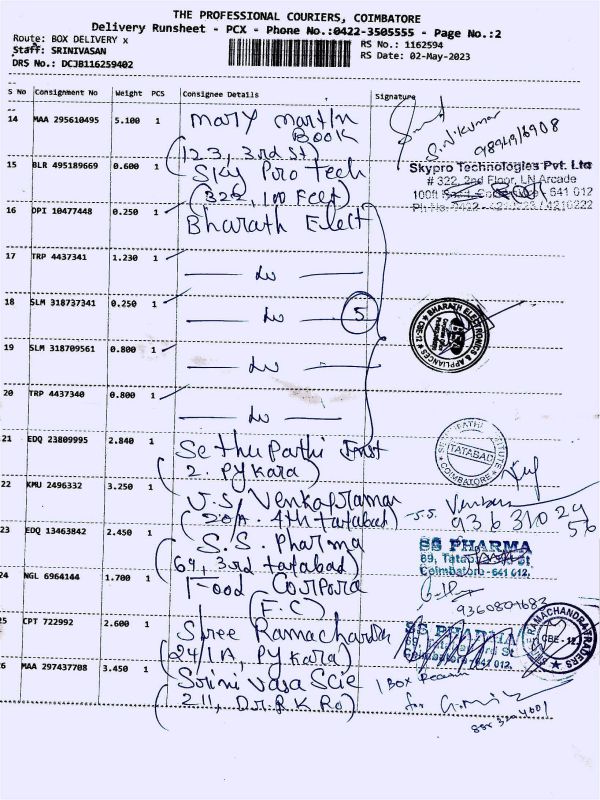 THE PROFESSIONAL COURIERS, COIMBATORE
Delivery Runsheet - PCX - Phone No.:0422-3505555 - Page No.:2
Route: BOX DELIVERY x
RS No.: 1162594
Staff: SRINIVASAN
RS Date: 02-May-2023
DRS No.: DCJB116259402
S No Consignment No Weight PCS Consignee Details Signature
14 MAA 295610495 5.100 1 Mary Martin
Book
(123, 3rd St)
S.N.Kumar
15 BLR 495189669 0.600 1 Sky Pro Tech
(322, 100 Feet)
Skypro Technologies Pvt. Ltd
# 322, 2nd Floor, LN Arcade
641 012
16 DPI 10477448 0.250 1 Bharath Elect
17 TRP 4437341 1.230 1
18 SLM 318737341 0.250 1
5
BHARATH ELECTRONICS & APPLIANCES
19 SLM 318709561 0.800 1
20 TRP 4437340 0.800 1
21 EDQ 23809995 2.840 1 Sethupathi Inst
(2. Pykara)
TATABAD
COIMBATORE
22 KMU 2496332 3.250 1 V.S. Venkatraman
(20/A. 4th Tatabad)
23 EDQ 13463842 2.450 1 S.S. Pharma
69, 3rd Tatabad)
SS PHARMA
Coimbatore - 641 012.
24 NGL 6964144 1.700 1 Food Corpora
(F.C)
25 CPT 722992 2.600 1 Sree Ramachandra
(24/1A, Pykara)
SS PHARMA
Coimbatore - 641 012.
RAMACHANDRA TRADERS
26 MAA 297437708 3.450 1 Srinivasa Scie
(211, Dr. R K Ro)
1 Box
for